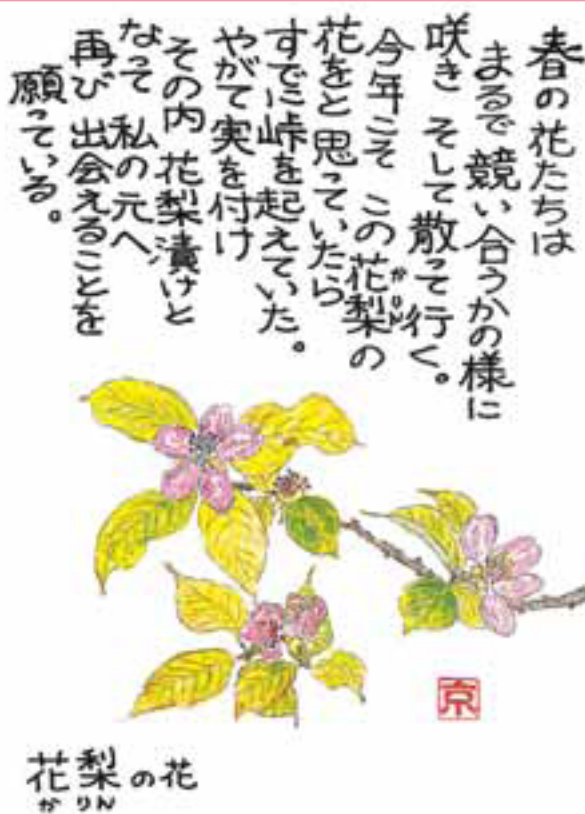 春の花たちは
まるで競い合うかの様に
咲き そして散って行く。
今年こそ この花梨の
かりん
花をと思っていたら
すでに峠を起えていた。
やがて実を付け
その内 花梨漬けと
なって 私の元へ
再び 出会えることを
願っている。
京
花梨の花
かりん